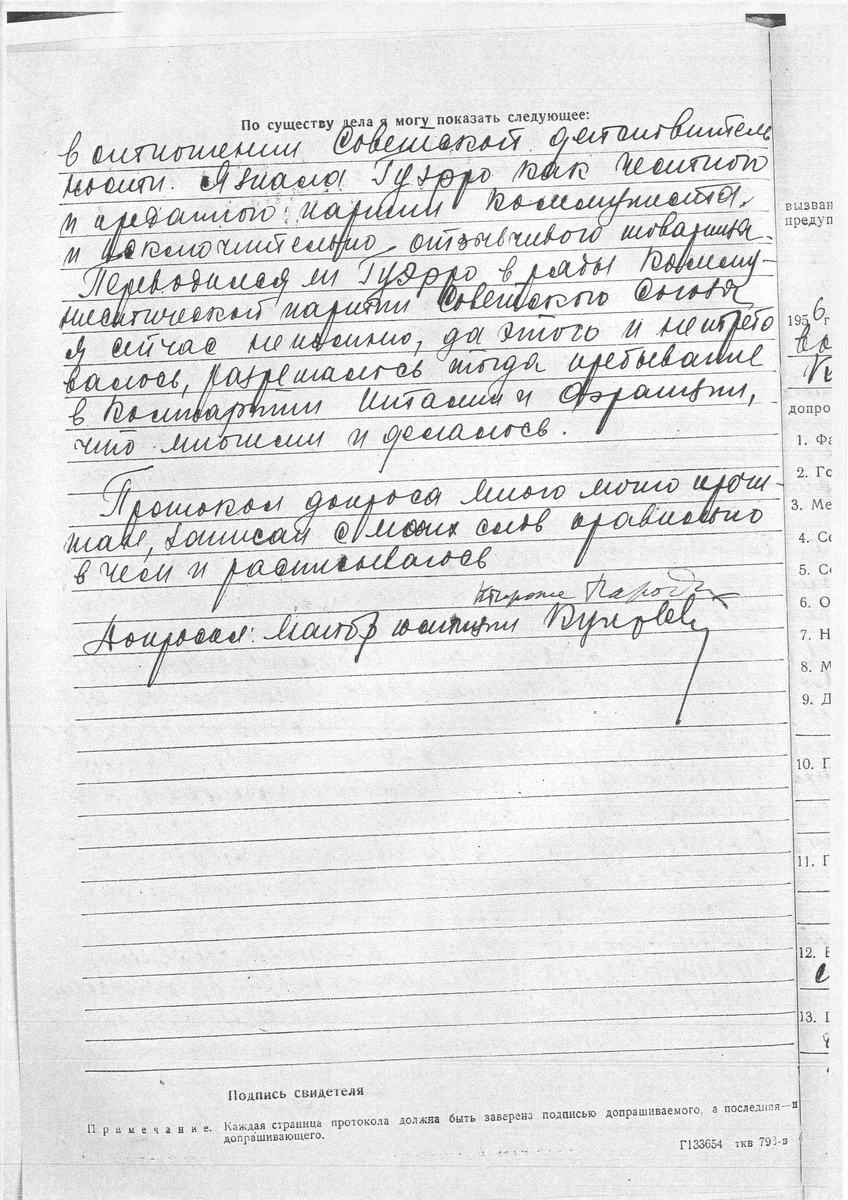 По существу дела я могу показать следующее:
в отношении Советской действитель
ности. Я знала Гуэрро как честного
и преданного партии коммуниста,
и исключительно отзывчивого товарища.
Переводился ли Гуэрро в ряды Комму-
нистической партии Советского Союза
я сейчас не помню, да этого и не требо
валось, разрешалось тогда пребывание
в Компартии Италии и Франции,
что многими и делалось.
Протокол допроса мною лично прочи-
тан, записан с моих слов правильно
в чем и расписываюсь
Допросил: Майор юстиции
Подпись свидетеля
Примечание. Каждая страница протокола должна быть заверена подписью допрашиваемого, а последняя—и
допрашивающего.
Г133654 ткв 793-в
вызван
предуп
195 6 г
допро
1. Фа
2. Го
3. Ме
4. Со
5. Со
6. О
7. Н
8. М
9. Д
10. П
11. Г
12. Е
13. I